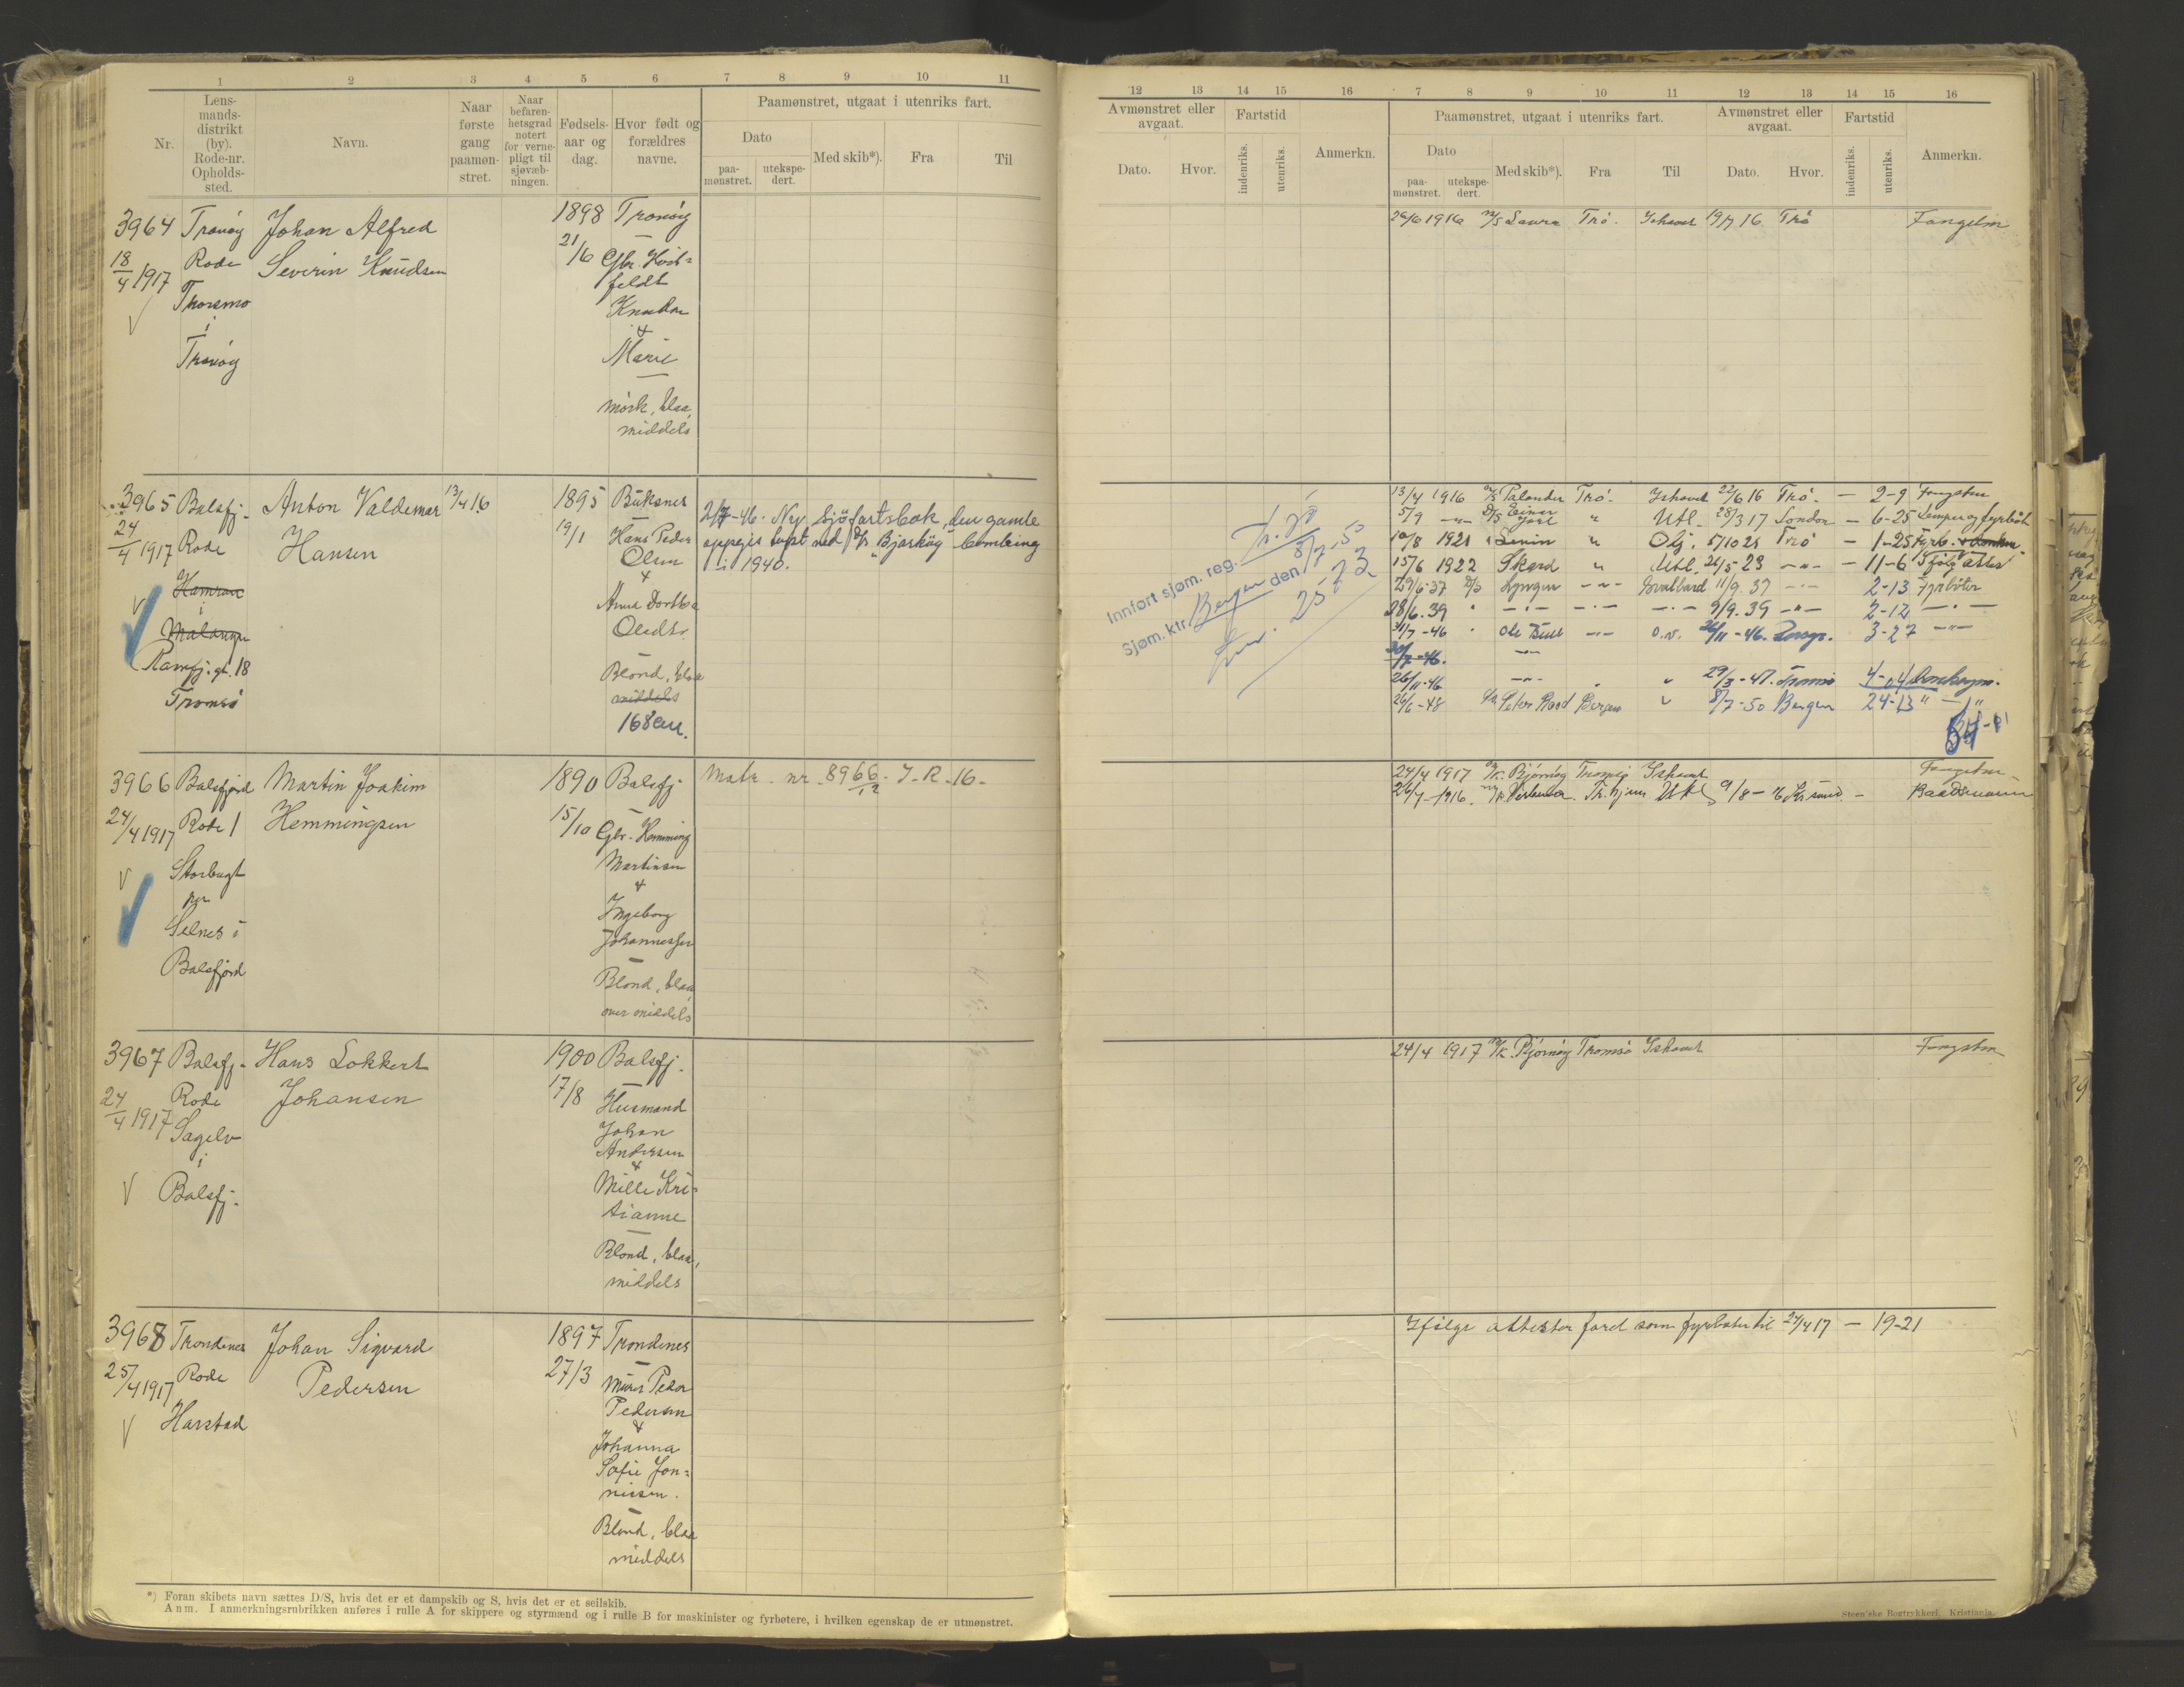 1 2 3 4 5 6 7 8 9 10 11
Nr.
Lens-
mands-
distrikt
(by).
Rode-nr.
Opholds-
sted.
Navn.
Naar
første
gang
paamøn-
stret.
Naar
befaren-
hetsgrad
notert
for verne-
pligt til
sjøvæb-
ningen.
Fødsels-
aar og
dag.
Hvor født og
forældres
navne.
Paamønstret, utgaat i utenriks fart.
Dato
paa-
mønstret.
utekspe-
dert.
Med skib*).
Fra
Til
3964
18/4 1917
Tranöy
Rode
Thorsmo
i
Tranöy
Johan Alfred
Severin Knudsen
1898
21/6
Tranöy
Gbr. Hvid=
feldt
Knudsen
&
Marie
mörk, blaa,
middels
3965
24/4 1917
Balsfj.
Rode
Hamran
i
Malangen
Ramfj.gt. 18
Tromsö
Anton Valdemar
Hansen
13/4 16
1895
19/1
Buksnes
Hans Peder
Olsen
&
Anna Dorthea
Oledtr.
Blond, blaa
middels
168 cm.
2/7-46. Ny Sjöfartsbok, den gamle
oppgis tapt ved D/S "Bjarköy" bombing
i 1940.
3966
24/4 1917
Balsfjord
Rode 1
Storbugt
pr
Selnes i
Balsfjord
Martin Joakim
Hemmingsen
1890
15/10
Balsfj
Gbr. Hemming
Martinsen
&
Ingeborg
Johannessen
Blond, blaa,
over middels
Matr. nr. 8966/12 - I - R - 16 -
3967
24/4 1917
Balsfj.
Rode
Sagelv
i
Balsfj.
Hans Lokkert
Johansen
1900
17/8
Balsfj.
Husmand
Johan
Andersen
&
Mille Kri=
stianne
Blond, blaa,
middels
3968
25/4 1917
Trondenes
Rode
Harstad
Johan Sigvard
Pedersen
1897
27/3
Trondenes
Murer Peder
Pedersen
&
Johanna
Sofie Jon=
nissen.
Blond, blaa
middels
*) Foran skibets navn sættes D/S, hvis det er et dampskib og S, hvis det er et seilskib.
Anm. I anmerkningsrubrikken anføres i rulle A for skippere og styrmænd og i rulle B for maskinister og fyrbøtere, i hvilken egenskap de er utmønstret.
12 13 14 15 16 7 8 9 10 11 12 13 14 15 16
Avmønstret eller
avgaat.
Dato.
Hvor.
Fartstid
indenriks.
utenriks.
Anmerkn.
Paamønstret, utgaat i utenriks fart.
Dato
paa-
mønstret.
utekspe-
dert.
Med skib*).
Fra
Til
Avmønstret eller
avgaat.
Dato.
Hvor.
Fartstid
indenriks.
utenriks.
Anmerkn.
26/6 1916 M/S Laura Trö. Ishavet 19/7 16 Trö Fangstm
Innført sjøm. reg.
Sjøm.ktr. Bergen den 8/7-50
13/4 1916 Palander Trö. Ishavet 22/6 16 Trö. - 2-9 Fangstm
5/9 -"- D/S Einar Jarl " Utl. 28/3 17 London - 6-25 Lemper og fyrböt
10/8 1921 Lenin " Obj. 5/10 21 Trö - 1-25 Fyrb.
15/6 1922 Skard " Utl. 26/5-23 -"- - 11-6 Ifölg attest
29/6-37 D/S Lyngen -"- Svalbard 11/9. 37 -"- 2-13 Fyrböter
28/6.39 " -"- -"- -"- 9/9.39 -"- 2-12 -"-
31/7-46 " Ole Bull -"- 26/11-46. 3-27 -"-
30/7-46. -"-
26/11-46 -"- " " 29/3-47. Tromsö 4-4
26/6-48 Bergen " 8/7-50 Bergen 24-13 " -"-
24/4 1917 M/K. Björnöy Ishavet Fangstm
26/7-1916. Tr.hjem Utl 9/8-16 Kr.sund - Baadsmann
24/4 1917 M/K. Björnöy Tromsö Ishavet Fangstm
Ifölge attester faret som fyrböter til 24/4 17 - 19-21
Steen'ske Bogtrykkeri. Kristiania.